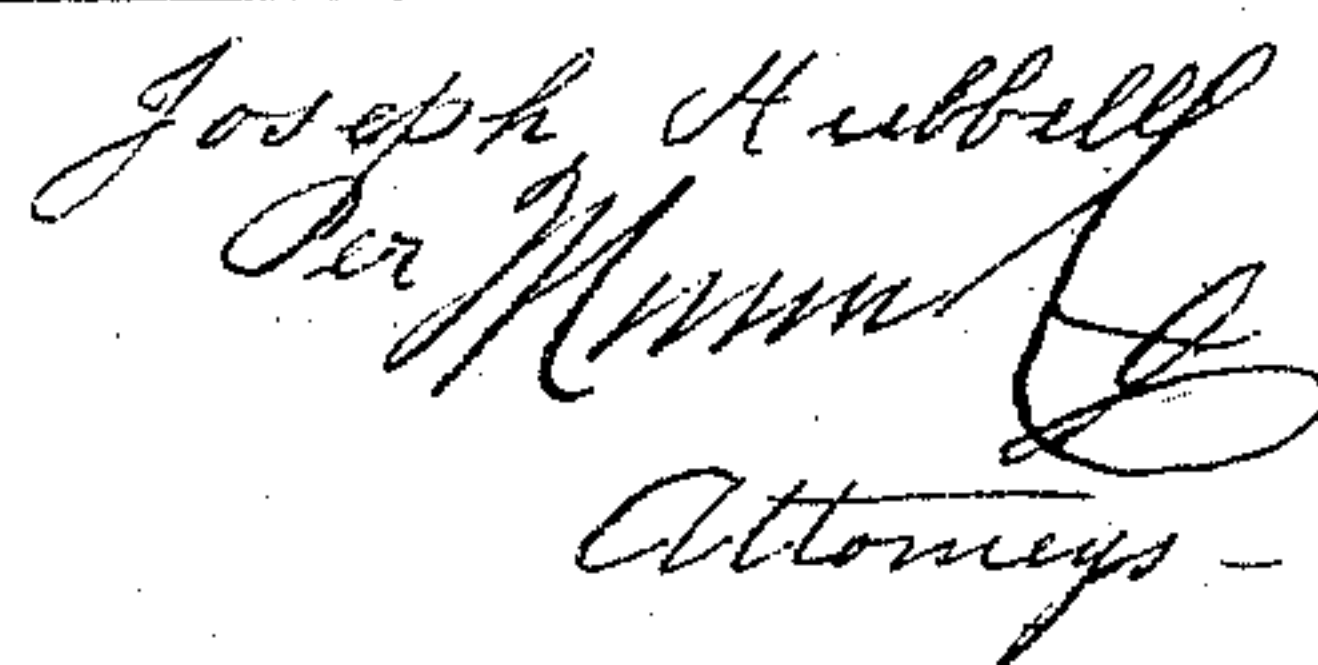 Joseph Hubbell
Per Munn &
Attorneys -